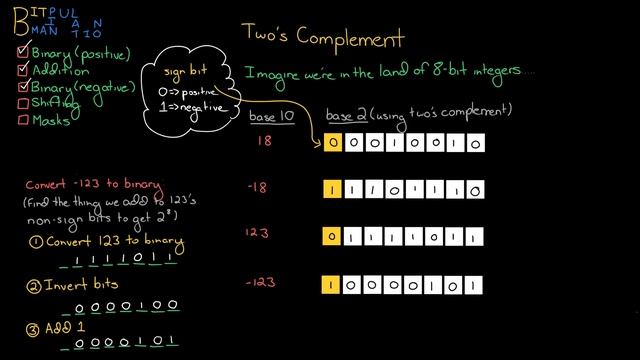 BITPUL
MANIATION
Binary (positive)
Addition
Binary (negative)
Shifting
Masks
sign bit
0 => positive
1 => negative
Two's Complement
Imagine we're in the land of 8-bit integers.....
base 10
base 2 (using two's complement)
18
0 0 0 1 0 0 1 0
-18
1 1 1 0 1 1 1 0
123
0 1 1 1 1 0 1 1
-123
1 0 0 0 0 1 0 1
Convert -123 to binary
(Find the thing we add to 123's
non-sign bits to get 2⁸)
① Convert 123 to binary
1 1 1 1 0 1 1
② Invert bits
0 0 0 0 1 0 0
③ Add 1
0 0 0 0 1 0 1